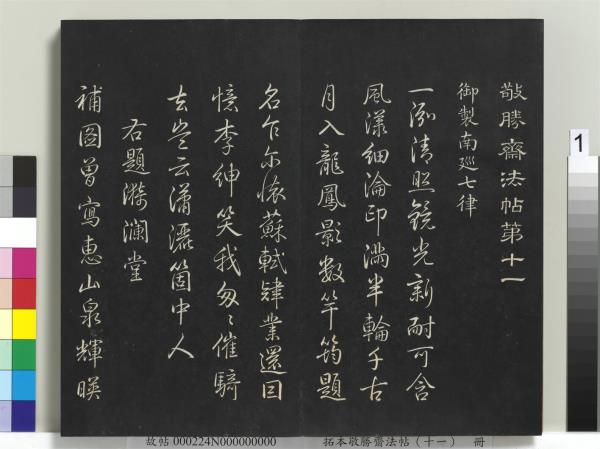 敬勝齋法帖第十一
御製南廵七律
一泓清照鏡光新耐可含
風漾細淪印滿半輪千古
月入龍鳳影數竿筠題
名乍尔懷蘇軾肄業還因
憶李紳笑我匆〻催騎
去豈云瀟灑箇中人
右題漪瀾堂
補圖曾寫惠山泉輝暎
1
故帖 000224N000000000 拓本敬勝齋法帖（十一） 冊